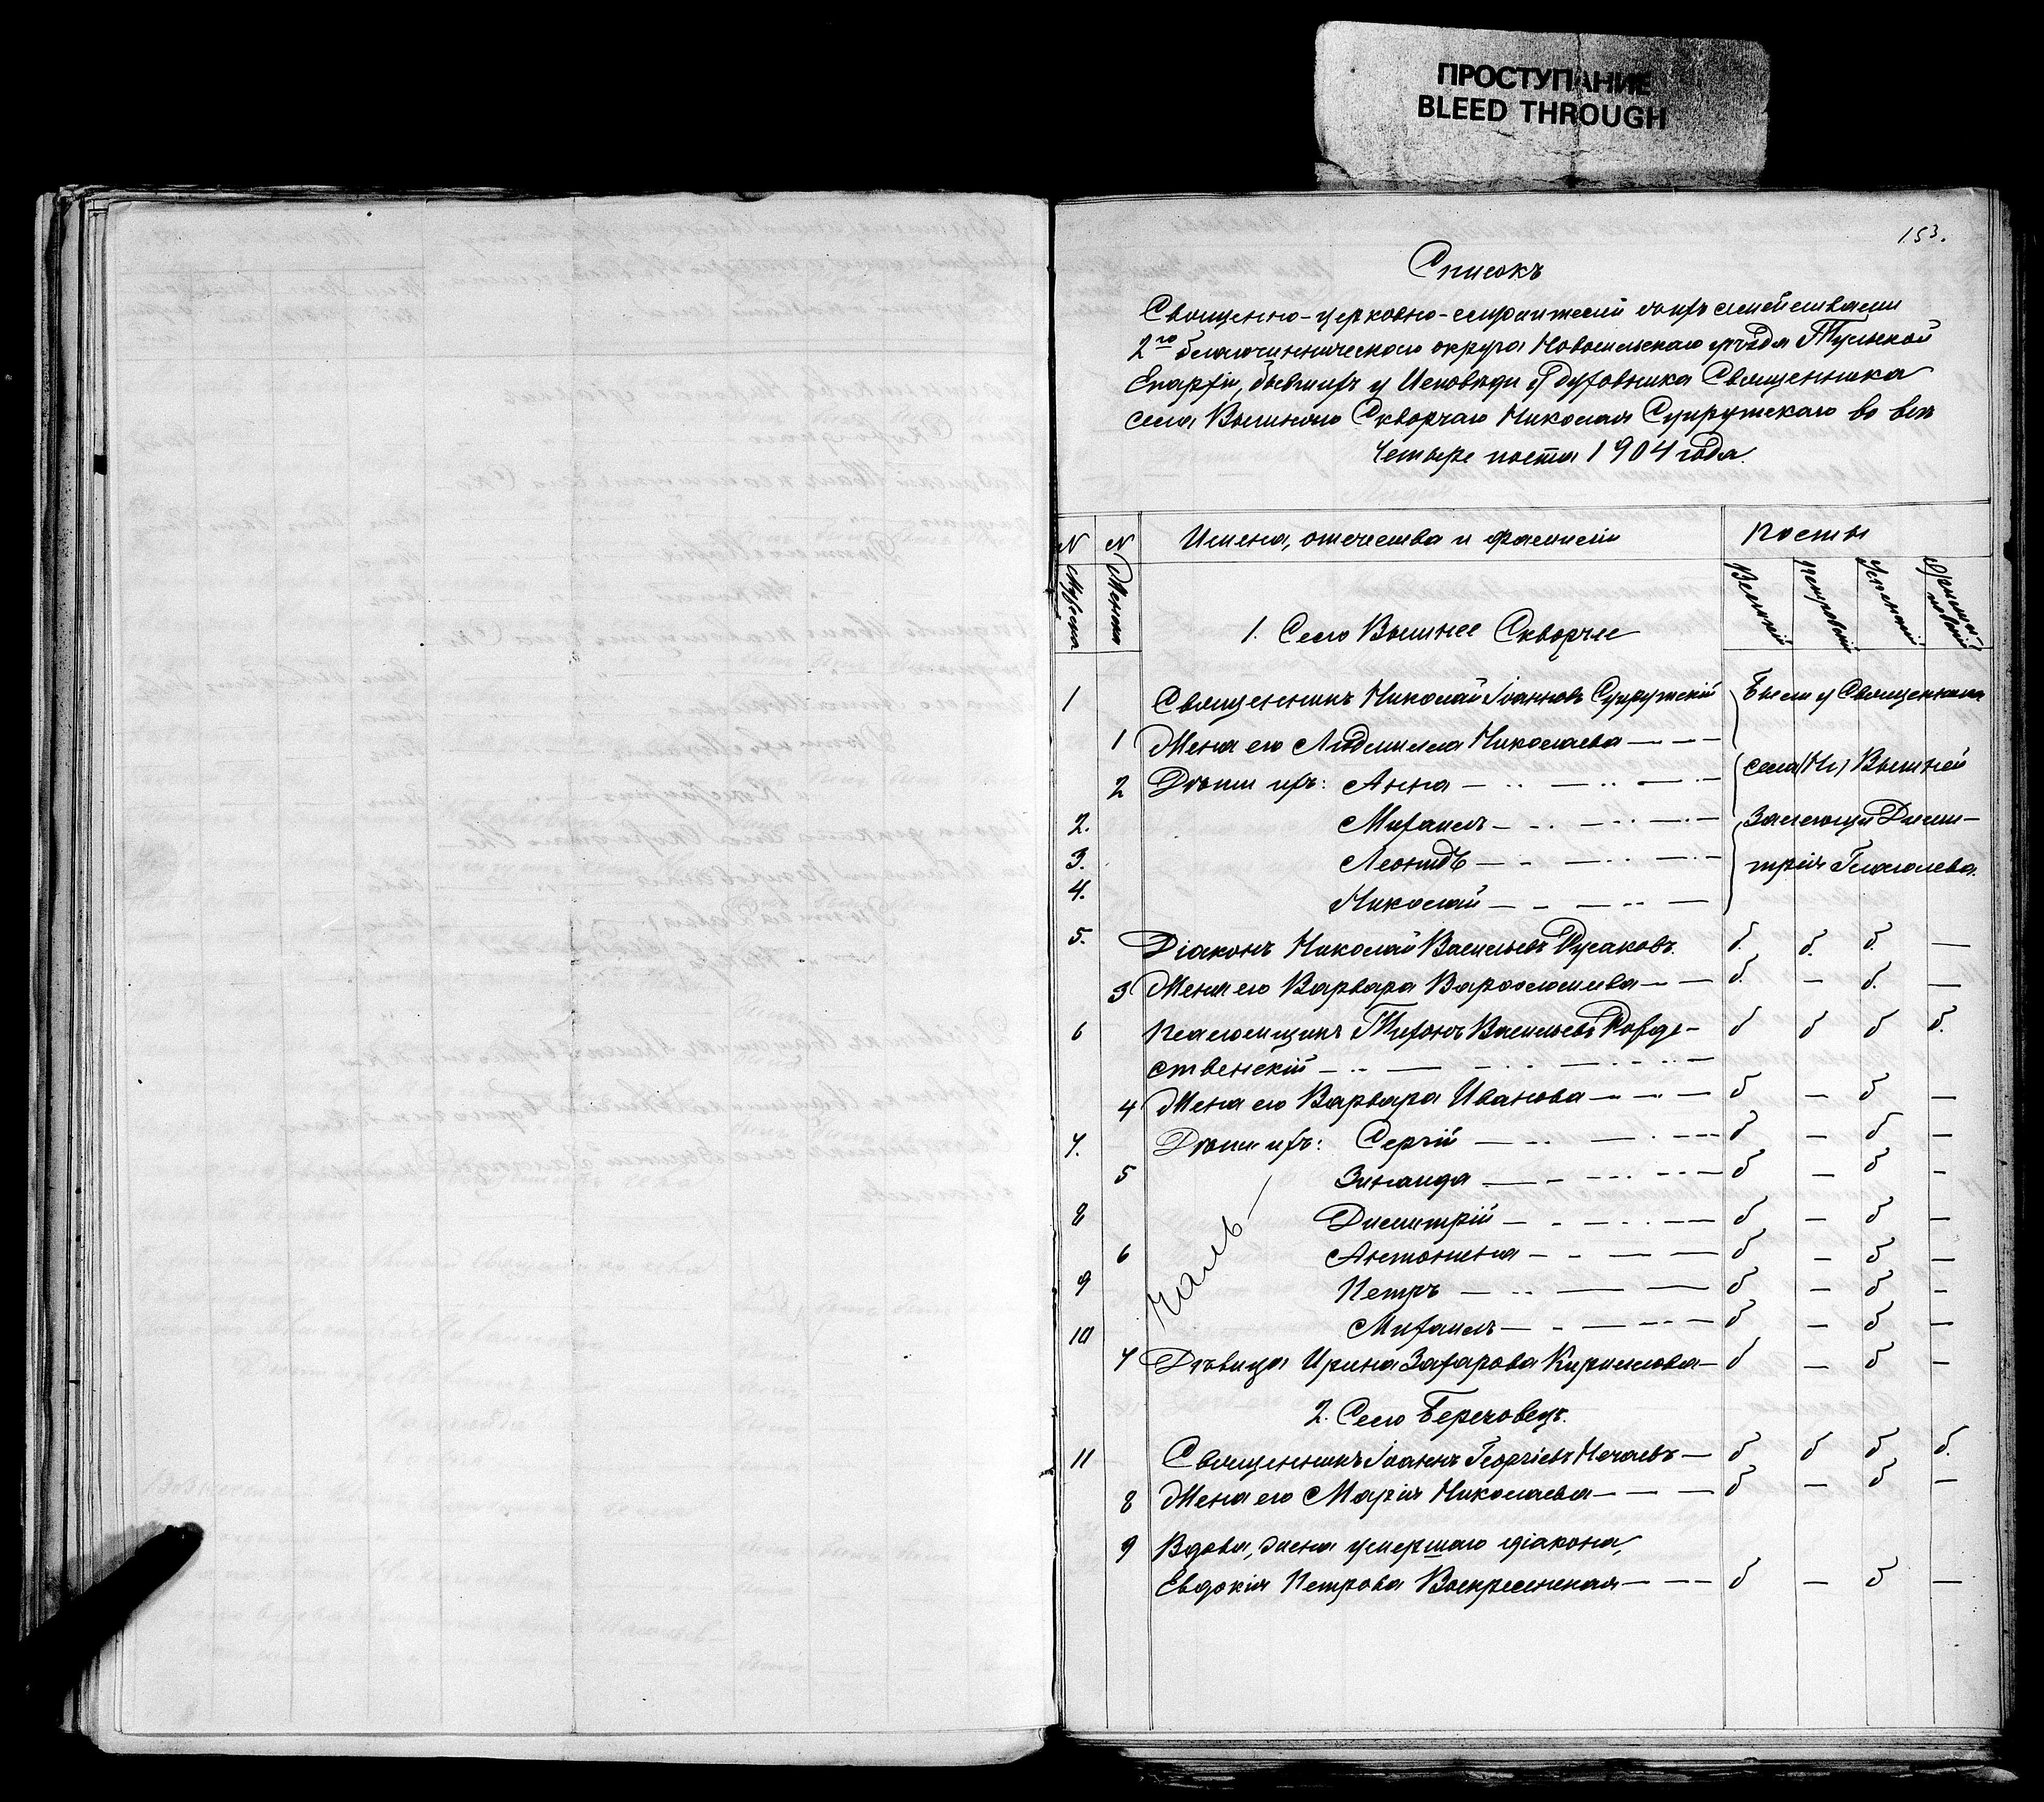 ПРОСТУПАНИЕ
BLEED THROUGH
153.
Списокъ
Священно-церковно-служителей съ ихъ семействами
2го благочинническаго округа Новосильскаго уѣзда Тульской
Епархіи, бывшихъ у Исповѣди у духовника Священника
села Вышняго Скворчаго Николая Супрутскаго во всѣ
четыре поста 1904 года.
N Мужеска
N Женска
Имена, отечества и фамиліи
Посты
Великій
Петровскій
Успенскій
1. Село Вышнее Скворчее
1 Священникъ Николай Іоанновъ Супрутскій Были у Священника
1 Жена его Людмилла Николаева
2 Дѣти ихъ: Анна села Вышней
2. Михаилъ Залегощи Дими-
3. Леонидъ трія Глаголева.
4. Николай
5. Діаконъ Николай Васильевъ Русаковъ. б. б. б. —
3 Жена его Варвара Варфоломеева б. — б. —
6 Псаломщикъ Тихонъ Васильевъ Рожде- б б б б.
ственскій
4 Жена его Варвара Иванова б — б —
7. Дѣти ихъ: Сергій б — б —
5 Зинаида б — б —
8 Димитрій б — б —
6 Антонина б — б —
9 Петръ б — б —
10 Михаилъ б — б —
7 Дѣвица Ирина Захарова Кириллова б — б —
2. Село Березовецъ.
11 Священникъ Іоаннъ Георгіевъ Нечаевъ б б б б.
8 Жена его Марія Николаева б — б —
9 Вдова, жена умершаго діакона,
Евдокія Петрова Воскресенская б — б —